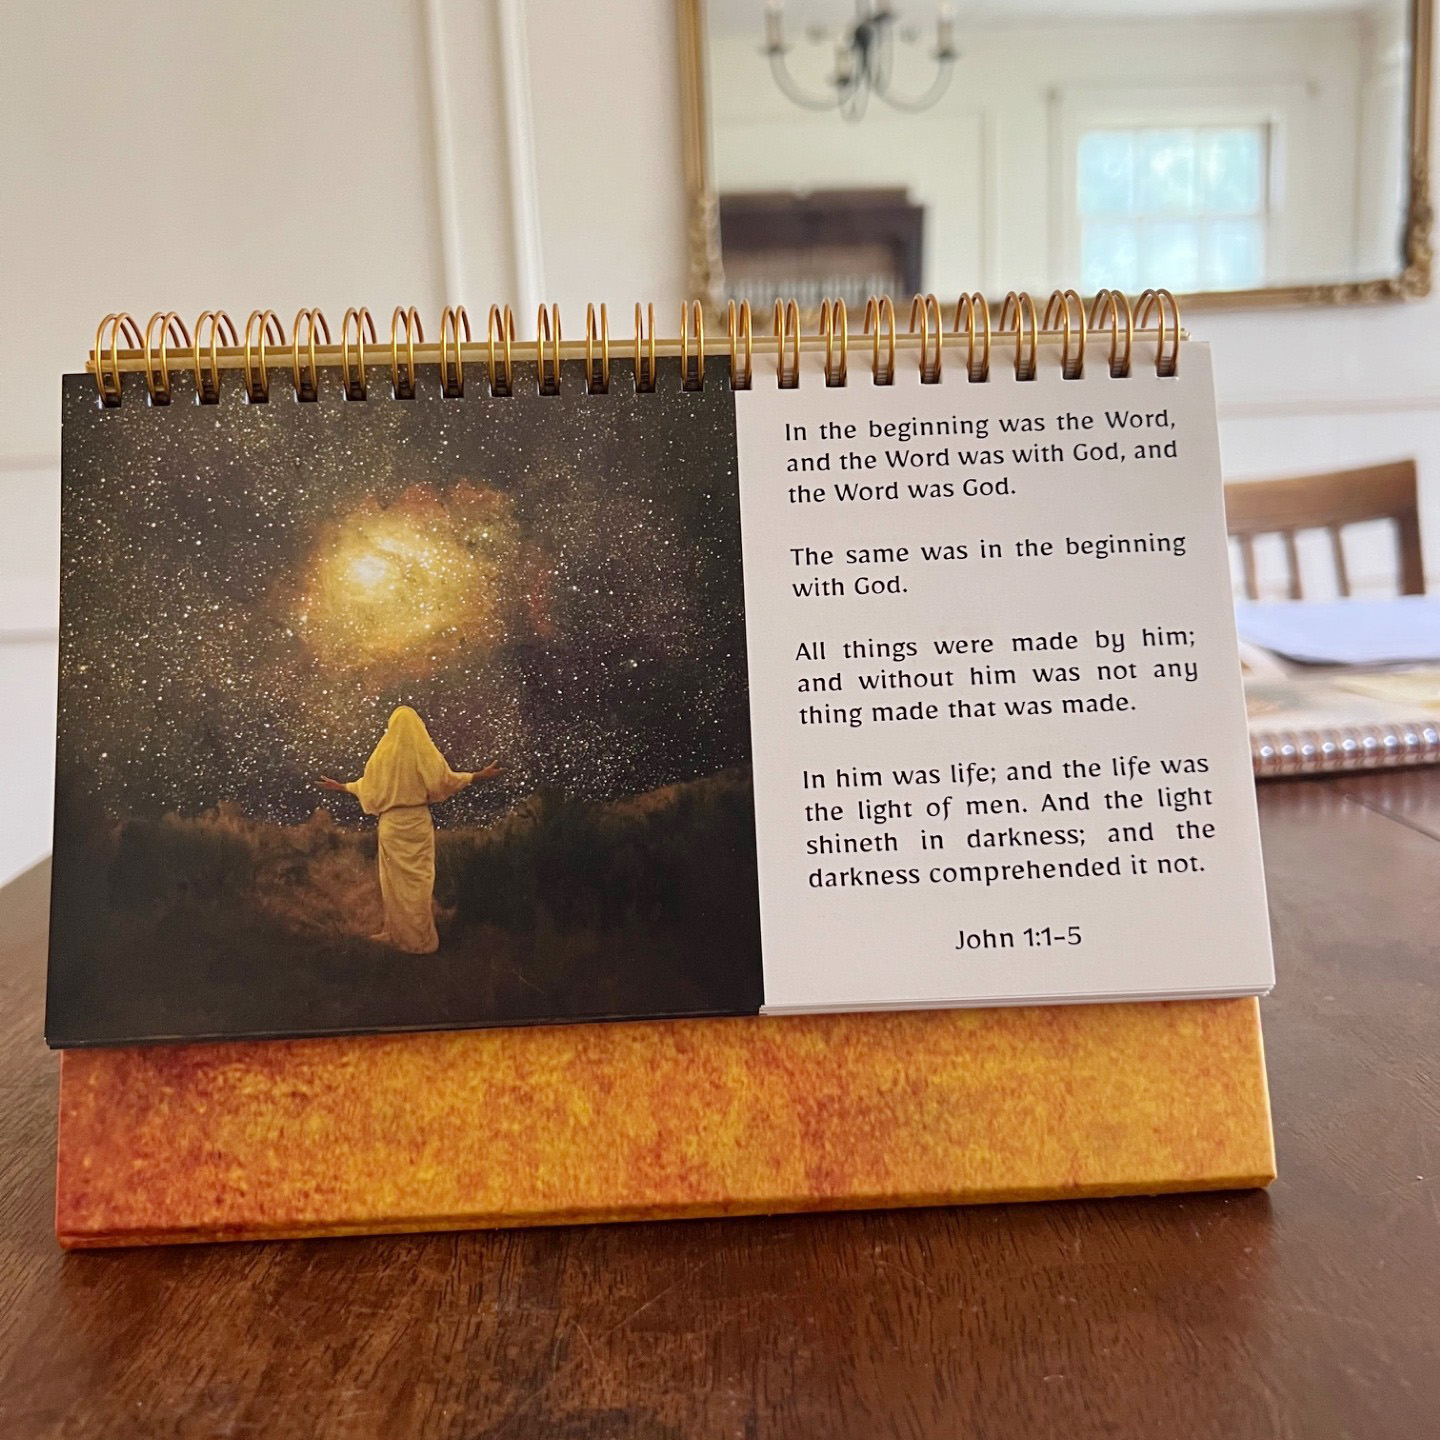 In the beginning was the Word,
and the Word was with God, and
the Word was God.
The same was in the beginning
with God.
All things were made by him;
and without him was not any
thing made that was made.
In him was life; and the life was
the light of men. And the light
shineth in darkness; and the
darkness comprehended it not.
John 1:1–5